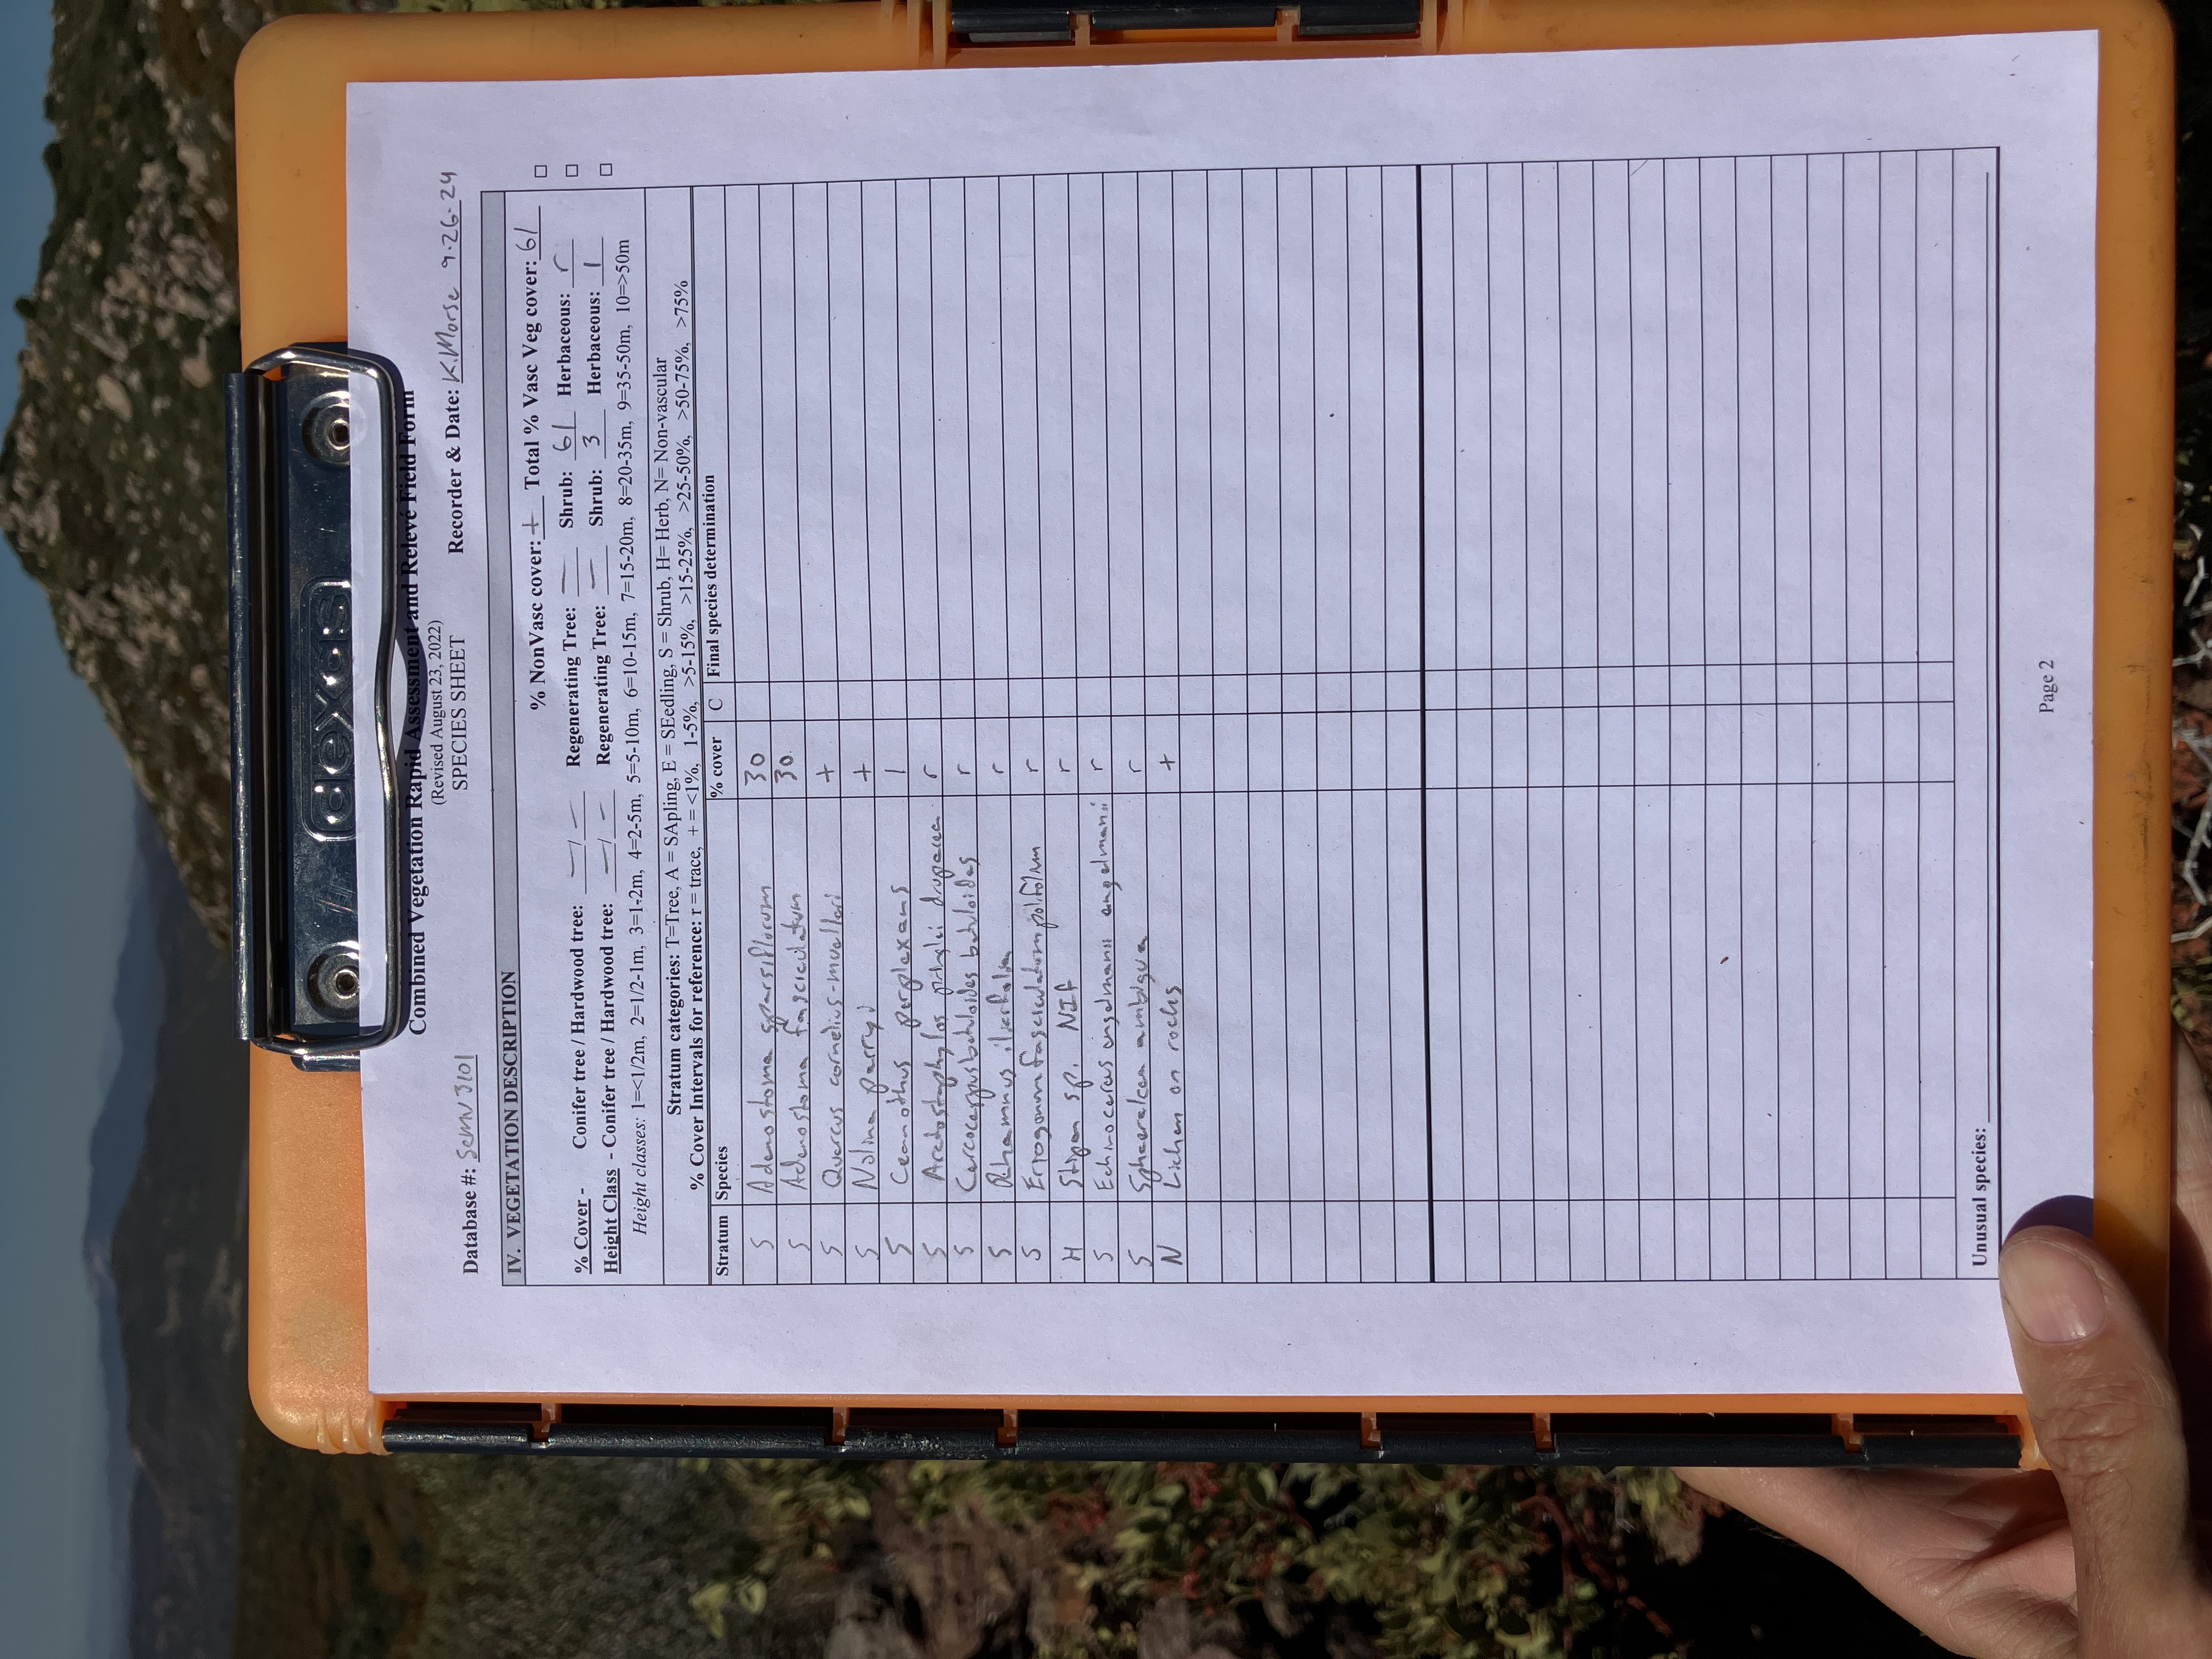 dexas
Combined Vegetation Rapid Assessment and Relevé Field Form
(Revised August 23, 2022)
SPECIES SHEET
Database #: SEMN3101 Recorder & Date: K.Morse 9-26-24
IV. VEGETATION DESCRIPTION
% NonVasc cover: + Total % Vasc Veg cover: 61 □
% Cover - Conifer tree / Hardwood tree: — / — Regenerating Tree: — Shrub: 61 Herbaceous: r □
Height Class - Conifer tree / Hardwood tree: — / — Regenerating Tree: — Shrub: 3 Herbaceous: 1 □
Height classes: 1=<1/2m, 2=1/2-1m, 3=1-2m, 4=2-5m, 5=5-10m, 6=10-15m, 7=15-20m, 8=20-35m, 9=35-50m, 10=>50m
Stratum categories: T=Tree, A = SApling, E = SEedling, S = Shrub, H= Herb, N= Non-vascular
% Cover Intervals for reference: r = trace, + = <1%, 1-5%, >5-15%, >15-25%, >25-50%, >50-75%, >75%
Stratum Species % cover C Final species determination
S Adenostoma sparsiflorum 30
S Adenostoma fasciculatum 30
S Quercus cornelius-muelleri +
S Nolina parryi +
S Ceanothus perplexans 1
S Arctostaphylos pringlei drupacea r
S Cercocarpus betuloides betuloides r
S Rhamnus ilicifolia r
S Eriogonum fasciculatum polifolium r
H Stipa sp. NIF r
S Echinocereus engelmanii engelmanii r
S Sphaeralcea ambigua r
N Lichen on rocks +
Unusual species:
Page 2